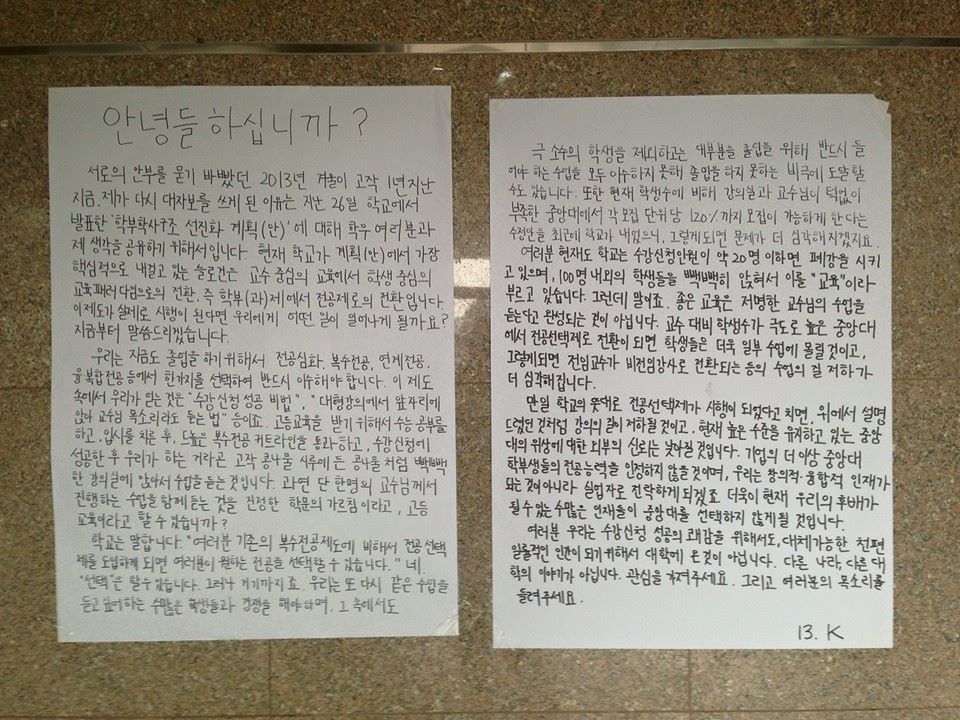 안녕들하십니까?
서로의 안부를 묻기 바빴던 2013년 겨울이 고작 1년지난
지금. 제가 다시 대자보를 쓰게 된 이유는 지난 26일 학교에서
발표한 '학부학사구조 선진화 계획(안)'에 대해 학우 여러분과
제 생각을 공유하기 위해서입니다. 현재 학교가 계획(안)에서 가장
핵심적으로 내걸고 있는 슬로건은 교수 중심의 교육에서 학생 중심의
교육패러다임으로의 전환. 즉 학부(과)제에서 전공제로의 전환입니다.
이제도가 실제로 시행이 된다면 우리에게 어떤 일이 일어나게 될까요?
지금부터 말씀드리겠습니다.
우리는 지금도 졸업을 하기위해서 전공심화, 복수전공, 연계전공,
융복합전공 등에서 한가지를 선택하여 반드시 이수해야합니다. 이 제도
속에서 우리가 얻는 것은 "수강신청 성공 비법", "대형강의에서 앞자리에
앉아 교수님 목소리라도 듣는 법" 등이죠. 고등교육을 받기 위해서 수능 공부를
하고, 입시를 치른 후, 드높은 복수전공 커트라인을 통과하고, 수강신청에
성공한 후 우리가 하는 거라곤 고작 콩나물 시루에 든 콩나물처럼 빽빽
한 강의실에 앉아서 수업을 듣는 것입니다. 과연 단 한명의 교수님께서
진행하는 수업을 함께 듣는 것을 진정한 학문의 가르침이라고, 고등
교육이라고 할 수 있습니까?
학교는 말합니다. "여러분 기존의 복수전공제도에 비해서 전공선택
제를 도입하게 되면 여러분이 원하는 전공을 선택할 수 있습니다." 네.
"선택"은 할수 있습니다. 그러나 거기까지죠. 우리는 또 다시 같은 수업을
듣고 싶어하는 수많은 학생들과 경쟁을 해야하며, 그 속에서도
극 소수의 학생을 제외하고는 대부분은 졸업을 위해 반드시 들
어야 하는 수업을 모두 이수하지 못해 졸업을 하지 못하는 비극에 도달할
수도 있습니다. 또한 현재 학생수에 비해 강의실과 교수님이 턱없이
부족한 중앙대에서 각 모집 단위당 120%까지 모집이 가능하게 한다는
수정안을 최근에 학교가 내었으니, 그렇게 되면 문제가 더 심각해지겠지요.
여러분 현재도 학교는 수강신청인원이 약 20명 이하면 폐강을 시키
고 있으며, 100명 내외의 학생들을 빽빽히 앉혀서 이를 "교육"이라
부르고 있습니다. 그런데 말이죠. 좋은 교육은 저명한 교수님의 수업을
듣는다고 완성되는 것이 아닙니다. 교수 대비 학생수가 극도로 높은 중앙대
에서 전공선택제로 전환이 되면 학생들은 더욱 일부 수업에 몰릴 것이고,
그렇게되면 전임교수가 비전임강사로 전환되는 등의 수업의 질 저하가
더 심각해집니다.
만일 학교의 뜻대로 전공선택제가 시행이 되었다고 치면, 위에서 설명
드렸던 것처럼 강의의 질이 저하될 것이고, 현재 높은 수준을 유지하고 있는 중앙
대의 위상에 대한 외부의 신뢰는 낮아질 것입니다. 기업의 더 이상 중앙대
학부생들의 전공능력을 인정하지 않을 것이며, 우리는 창의적·융합적 인재가
되는 것이 아니라 실업자로 전락하게 되겠죠. 더욱이 현재 우리의 후배가
될 수 있는 수많은 인재들이 중앙대를 선택하지 않게 될 것입니다.
여러분 우리는 수강신청 성공의 쾌감을 위해서도, 대체가능한 천편
일률적인 인간이 되기 위해서 대학에 온 것이 아닙니다. 다른 나라, 다른 대
학의 이야기가 아닙니다. 관심을 가져주세요. 그리고 여러분의 목소리를
들려주세요.
13. K